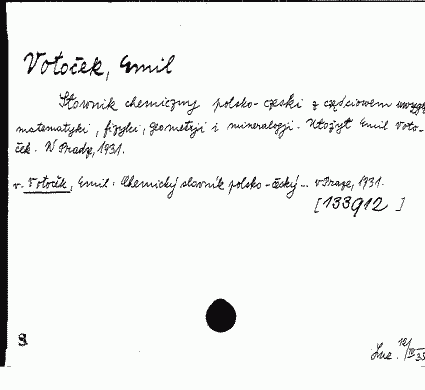 Votoček, Emil
Słownik chemiczny polsko-czeski z częściowem uwzgl.
matematyki, fizyki, geometrji i mineralogji. Ułożył Emil Voto-
ček. W Pradze, 1931.
v. Votoček, Emil: Chemický slovník polsko-český... v Praze, 1931.
[133912]
8.